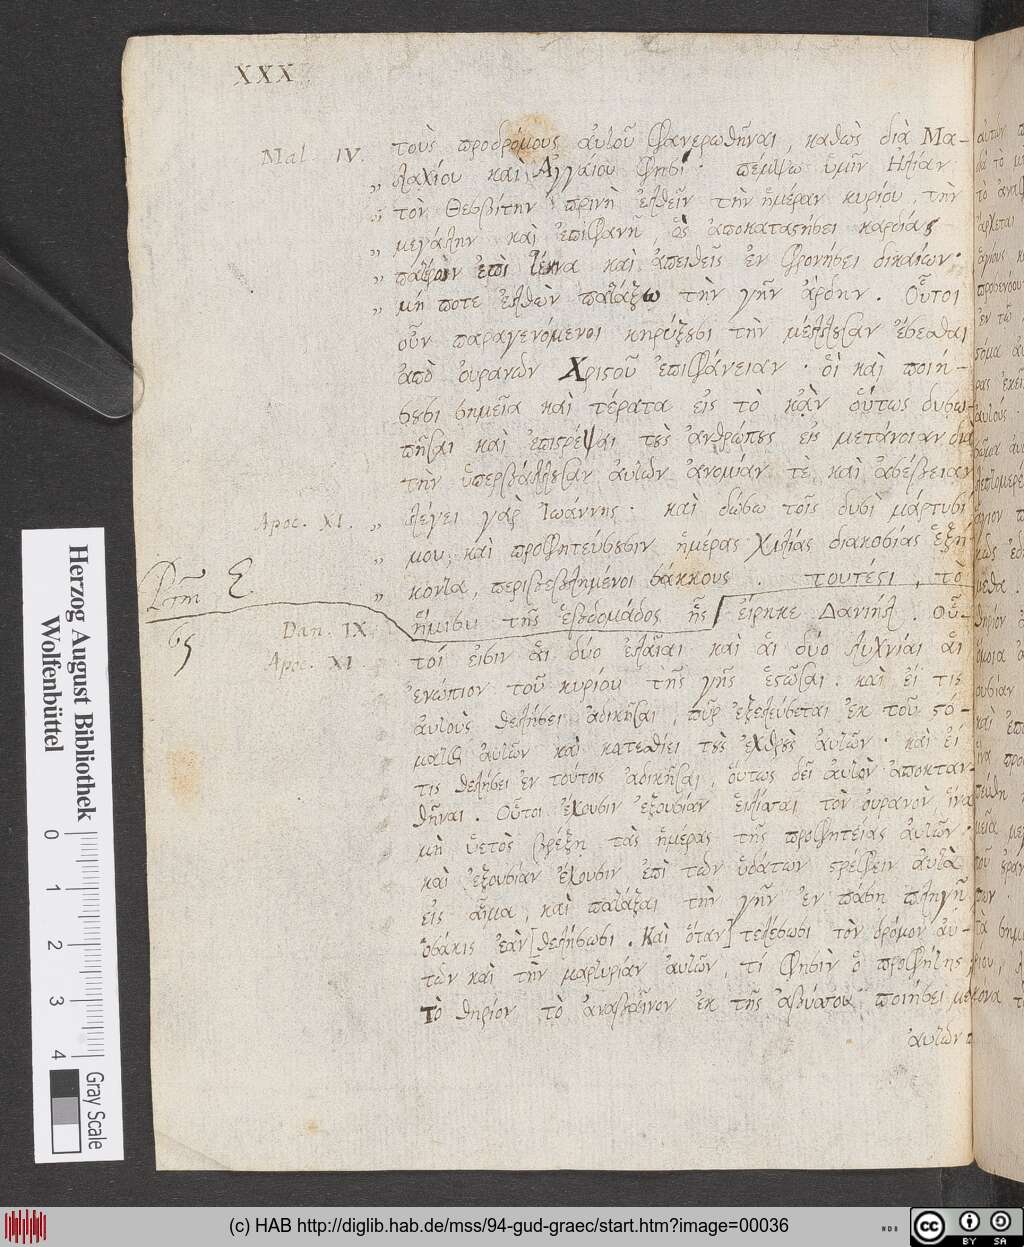 XXX
Mal. IV. τοὺς προδρόμους ἀυτοῦ φανερωθῆναι, καθὼς διὰ Μα-
„ λαχίου καὶ Ἀγγαίου φησί· πέμψω ὑμῖν Ηλίαν
„ τὸν Θεσβίτην πρινὴ ἐλθεῖν τὴν ἡμέραν κυρίου, τὴν
„ μεγάλην καὶ ἐπιφανῆ, ὃς ἀποκαταστήσει καρδίας
„ πατέρων ἐπὶ τέκνα καὶ ἀπειθεῖς ἐν φρονήσει δικαίων·
„ μή ποτε ἐλθὼν πατάξω τὴν γῆν ἄρδην. Οὗτοι
οὖν παραγενόμενοι κηρύξουσι τὴν μέλλουσαν ἔσεσθαι
ἀπὸ ὀυρανῶν Χριστοῦ ἐπιφάνειαν· οἳ καὶ ποιή-
σουσι σημεῖα καὶ τέρατα εἰς τὸ κᾂν οὕτως δυσω-
πῆσαι καὶ ἐπιστρέψαι τοὺς ἀνθρώπους εἰς μετάνοιαν διὰ
τὴν ὑπερβάλλουσαν ἀυτῶν ἀνομίαν τὲ καὶ ἀσέβειαν
Apoc. XI. „ λέγει γὰρ Ἰωάννης· καὶ δώσω τοῖς δυσὶ μάρτυσί
„ μου, καὶ προφητεύσουσιν ἡμέρας χιλίας διακοσίας ἑξή-
„ κοντα, περιβεβλημένοι σάκκους. τουτέστι, τὸ
Dan. IX. ἥμισυ τῆς ἑβδομάδος ἧς εἴρηκε Δανιήλ. Οὗ-
65
Apoc. XI. τοί εἰσιν ἁι δύο ἐλαῖαι καὶ ἁι δύο λυχνίαι ἁι
ἐνώπιον τοῦ κυρίου τῆς γῆς ἑστῶσαι. καὶ εἴ τις
ἀυτοὺς θελήσει ἀδικῆσαι, πῦρ ἐξελεύσεται ἐκ τοῦ στό-
ματος ἀυτῶν καὶ κατεσθίει τοὺς ἐχθροὺς ἀυτῶν· καὶ εἴ
τις θελήσει ἐν τούτοις ἀδικῆσαι, ὅυτως δεῖ ἀυτὸν ἀποκταν-
θῆναι. Οὗτοι ἔχουσιν ἐξουσίαν κλεῖσαι τὸν ὀυρανὸν ἵνα
μὴ ὑετὸς βρέξῃ τὰς ἡμέρας τῆς προφητείας ἀυτῶν·
καὶ ἐξουσίαν ἔχουσιν ἐπὶ τῶν ὑδάτων στρέφειν ἀυτὰ
εἰς αἷμα, καὶ πατάξαι τὴν γῆν ἐν πάσῃ πληγῇ
ὁσάκις ἐὰν [θελήσωσι. Καὶ ὅταν] τελέσωσι τὸν δρόμον ἀυ-
τῶν καὶ τὴν μαρτυρίαν ἀυτῶν, τί φησὶν ὁ προφήτης;
Τὸ θηρίον τὸ ἀναβαῖνον ἐκ τῆς ἀβύσσου ποιήσει με
ἀυτῶν π
Herzog August Bibliothek
Wolfenbüttel
0 1 2 3 4
Gray Scale
(c) HAB http://diglib.hab.de/mss/94-gud-graec/start.htm?image=00036
WDB
cc BY SA